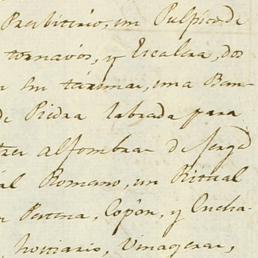 Presbiterio, un Pulpito de
tornavos, y Escalera, dos
en tarima, una Ban
de Piedra labrada para
tres alfombras de Xerga
al Romano, un Ritual
n Patena, Copon, y Cucha
hostiario, Vinageras,